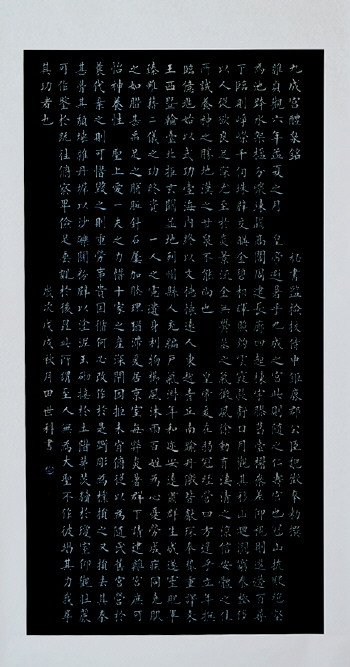 九成宮醴泉銘 秘書監檢校侍中鉅鹿郡公臣魏徵奉勅撰
維貞觀六年孟夏之月 皇帝避暑乎九成之宮此則隨之仁壽宮也冠山抗殿絕壑
為池跨水架楹分巖竦闕高閣周建長廊四起棟宇膠葛臺榭參差仰視則迢遰百尋
下臨則崢嶸千仞珠璧交暎金碧相暉照灼雲霞蔽虧日月觀其移山迴澗窮泰極侈
以人從欲良足深尤至於炎景流金無鬱蒸之氣微風徐動有淒清之涼信安體之佳
所誠養神之勝地漢之甘泉不能尚也 皇帝爰在弱冠經營四方逮乎立年撫
臨億兆始以武功壹海內終以文德懷遠人東越青丘南踰丹徼皆獻琛奉贄重譯來
王西暨輪臺北拒玄闕並地列州縣人充編戶氣淑年和邇安遠肅群生咸遂靈貺畢
臻雖藉二儀之功終資 一人之慮遺身利物櫛風沐雨百姓為心憂勞成疾同堯肌
之如腊甚禹足之胼胝針石屢加腠理猶滯爰居京室每弊炎暑群下請建離宮庶可
怡神養性 聖上愛一夫之力惜十家之產深閉固拒未肯俯從以為隨氏舊宮營於
曩代棄之則可惜毀之則重勞事貴因循何必改作於是斲彫為樸損之又損去其泰
甚葺其頹壞雜丹墀以沙礫間粉壁以塗泥玉砌接於土階茅茨續於瓊室仰觀壯麗
可作鑒於既往俯察卑儉足垂訓於後昆此所謂至人無為大聖不作彼竭其力我享
其功者也 歲次戊戌秋月田世科書